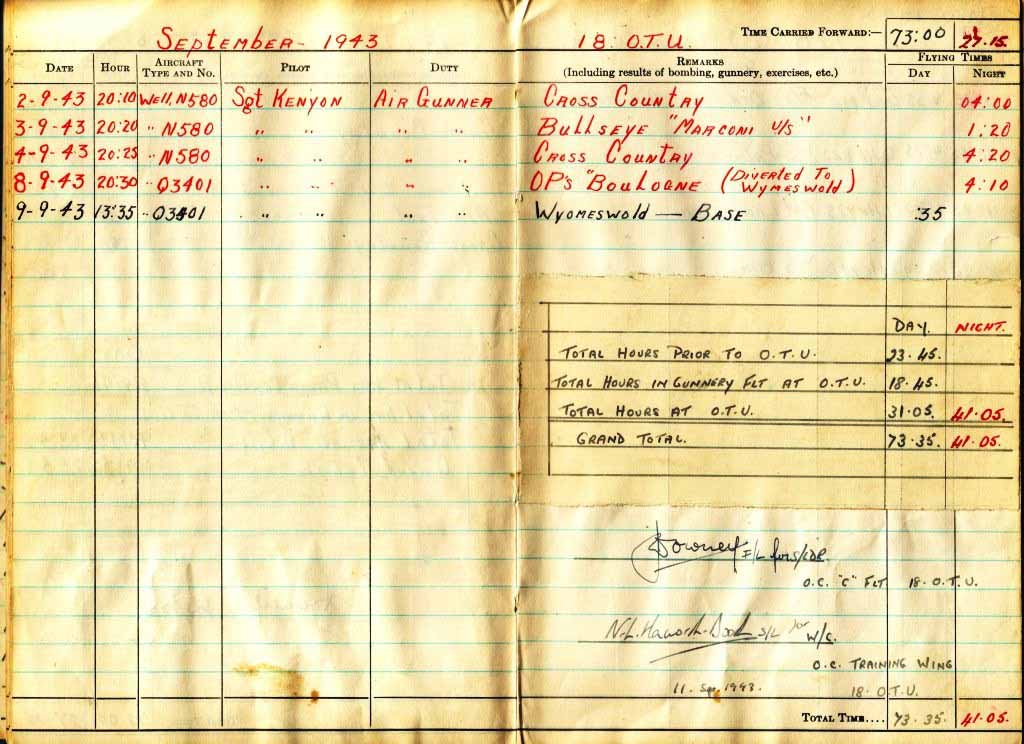 September - 1943 18 O.T.U. Time Carried Forward:— 73:00 27.15
Flying Times
Date Hour Aircraft Type and No. Pilot Duty Remarks (Including results of bombing, gunnery, exercises, etc.) Day Night
2-9-43 20:10 Well. N580 Sgt Kenyon Air Gunner Cross Country 04:00
3-9-43 20:20 " N580 " " " " Bullseye "Marconi u/s" 1:20
4-9-43 20:25 " N580 " " " " Cross Country 4:20
8-9-43 20:30 " O3401 " " " " OP's "Boulogne (Diverted To Wymeswold) 4:10
9-9-43 13:35 " O3401 " " " " Wyomeswold — Base :35
Day. Night.
Total Hours Prior to O.T.U. 23.45.
Total Hours in Gunnery Flt at O.T.U. 18.45.
Total Hours at O.T.U. 31.05. 41.05.
Grand Total. 73.35. 41.05.
F/L for S/LDR.
O.C. "C" Flt 18. O.T.U.
S/L for W/C.
O.C. Training Wing
11. Sep. 1943. 18. O.T.U.
Total Time.... 73.35. 41.05.